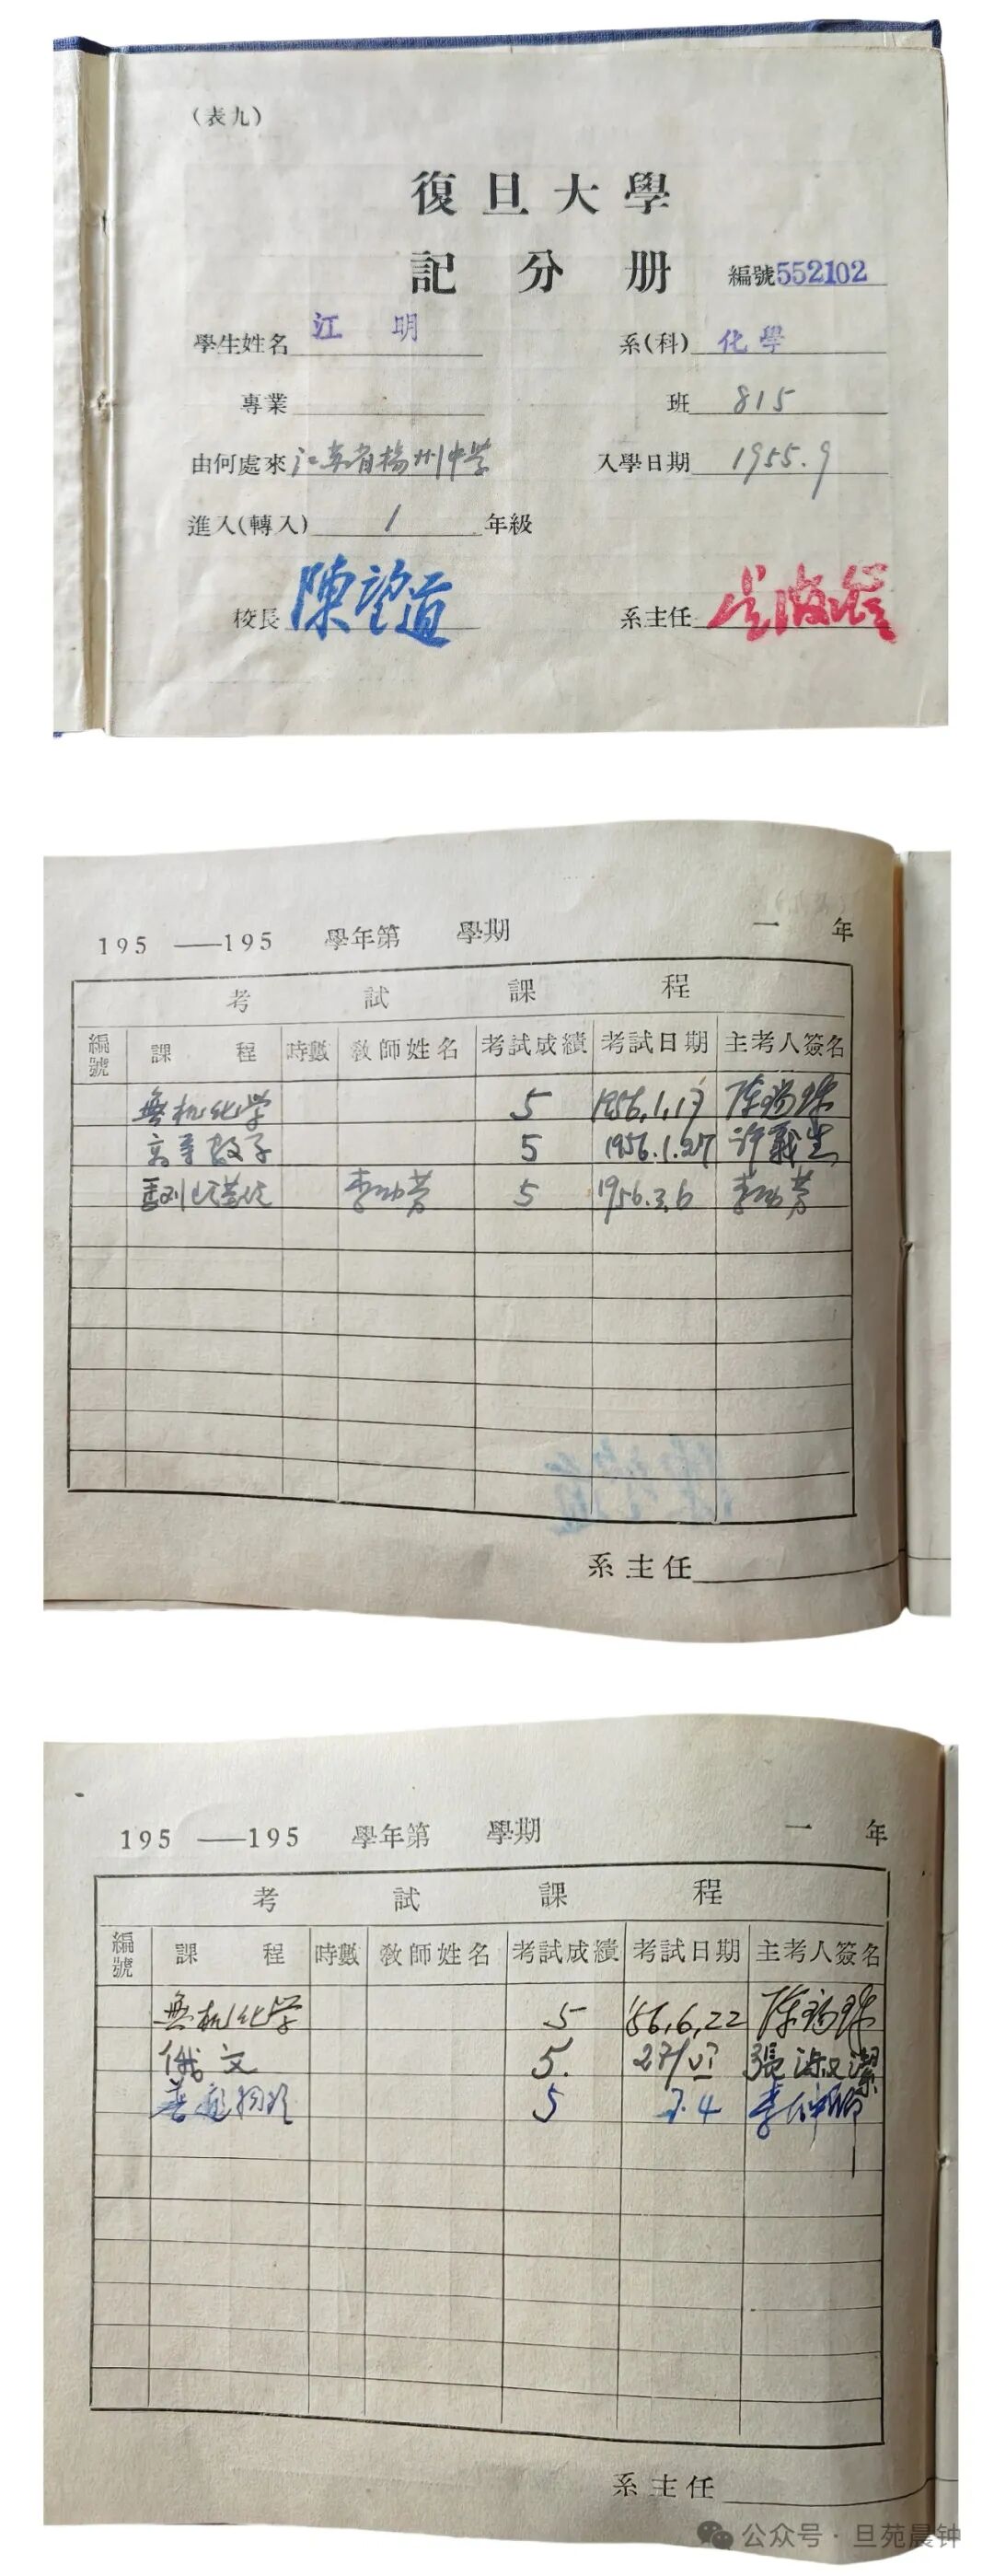 （表九）
復旦大學
記分册 編號552102
學生姓名 江明 系(科) 化學
專業 班 815
由何處來 江苏省揚州中学 入學日期 1955.9
進入(轉入) 1 年級
校長 陳望道 系主任
195 ——195 學年第 學期 一年
考試課程
編號 課程 時數 教師姓名 考試成績 考試日期 主考人簽名
無机化学 5 1956.1.17
高等数学 5 1956.1.27
5 1956.3.6
系主任
195 ——195 學年第 學期 一年
考試課程
編號 課程 時數 教師姓名 考試成績 考試日期 主考人簽名
無机化学 5 '56,6,22
俄文 5. 27/VI 張淑潔
普通物理 5 7.4 李仲卿
系主任
公众号·旦苑晨钟